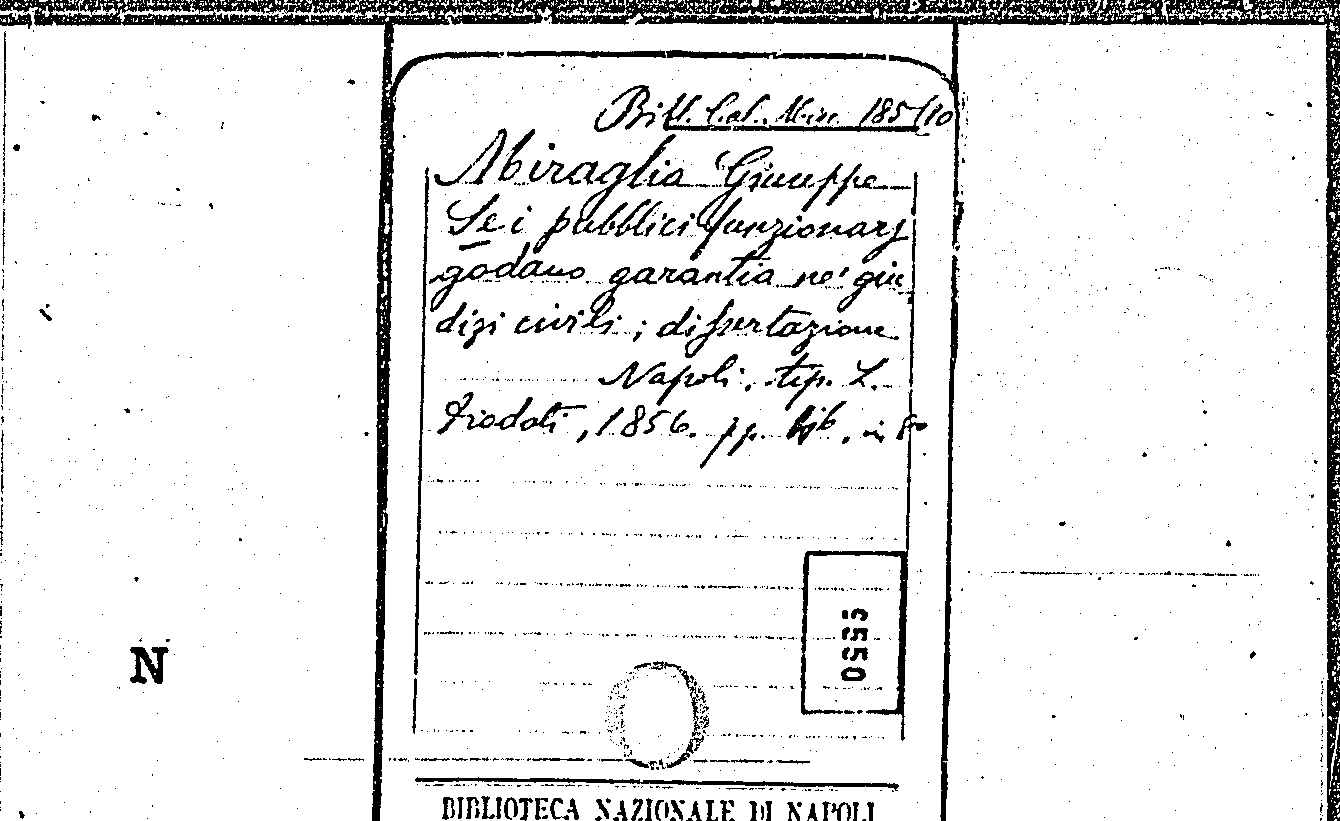 Bibl. Cal. Misc. 185/10
Miraglia Giuseppe
Se i pubblici funzionarj
godano garantia ne' giu
dizi civili ; dissertazione
Napoli, tip. L.
Diodati, 1856. pp. in 8º
0555
N
BIBLIOTECA NAZIONALE DI NAPOLI